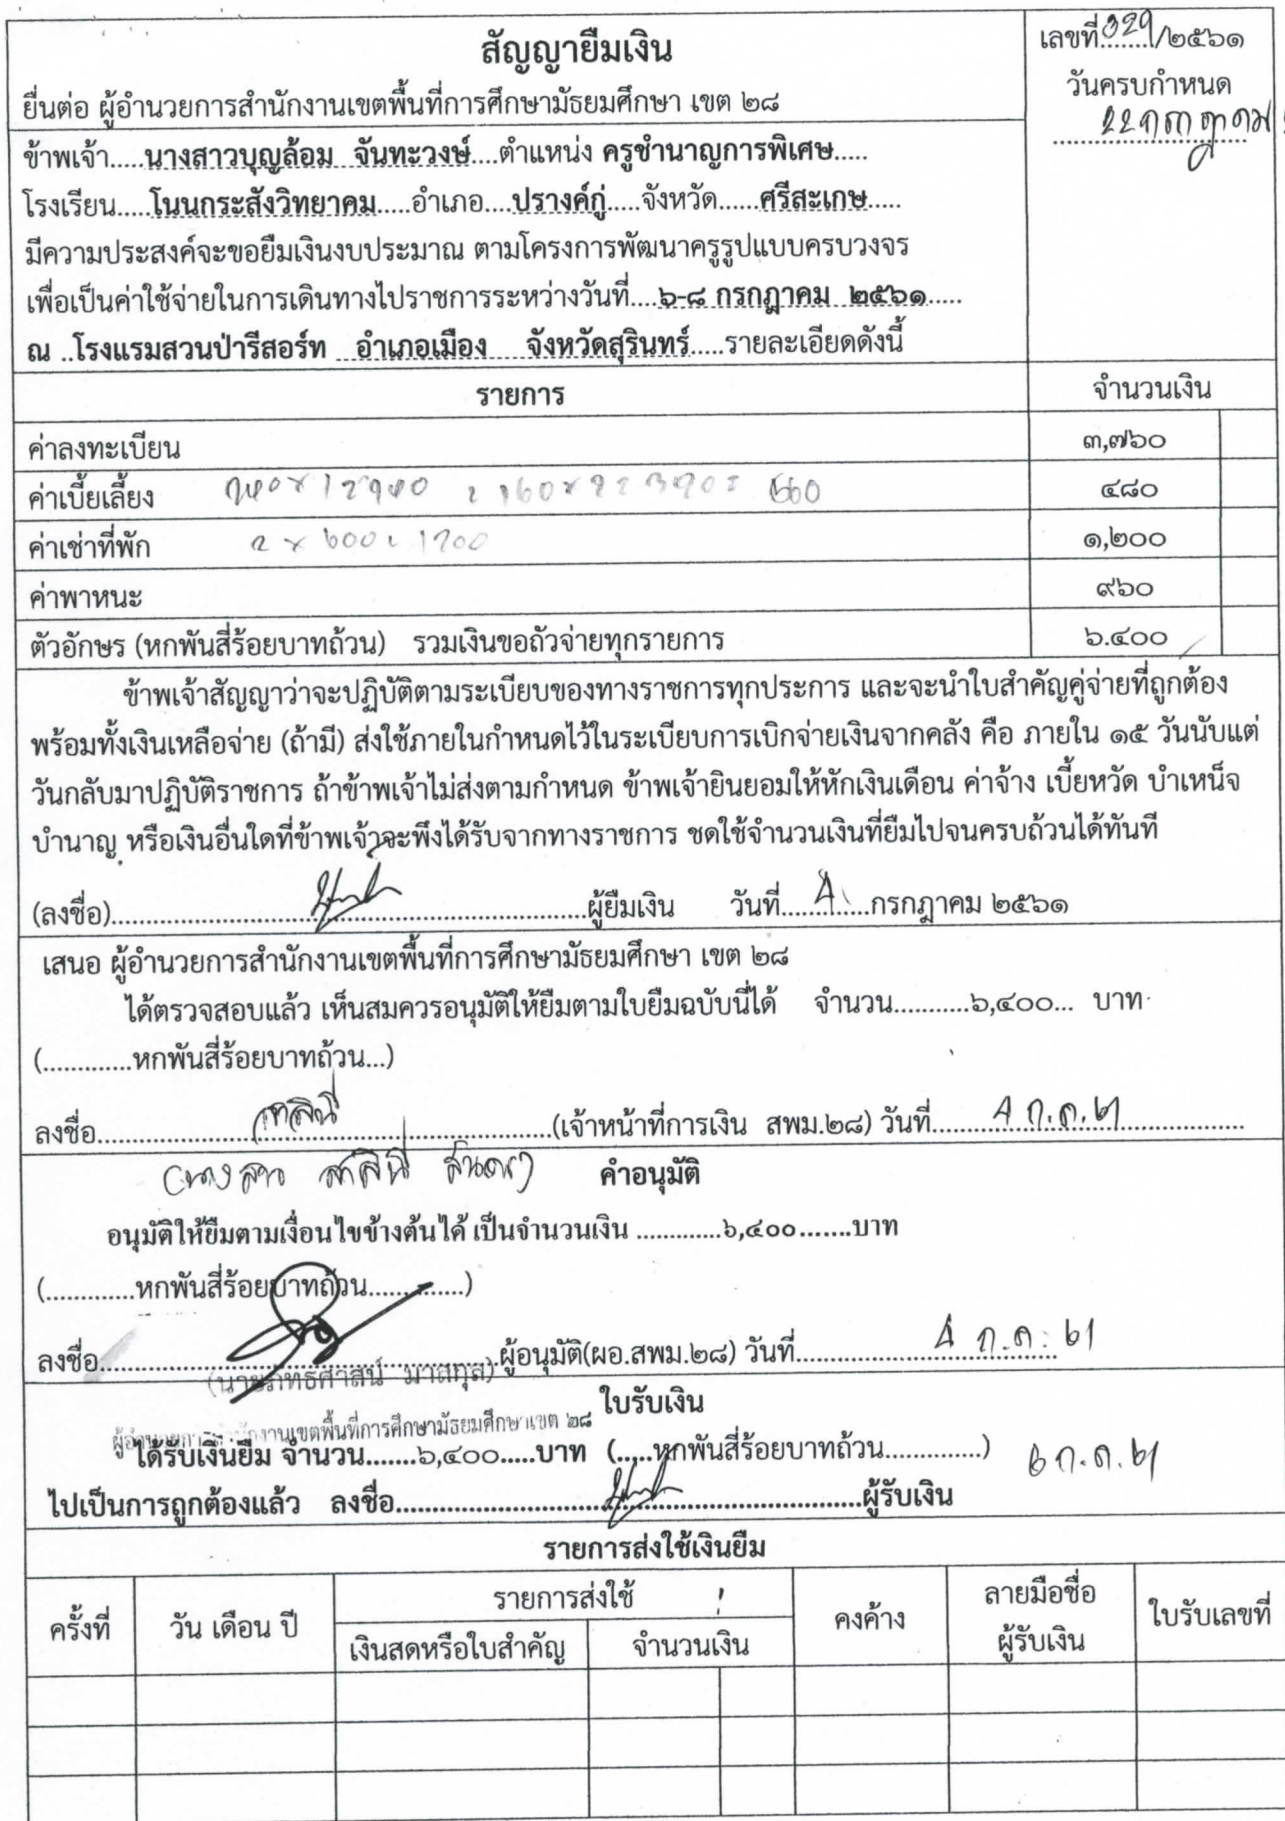 สัญญายืมเงิน
เลขที่ 029/๒๕๖๑
ยื่นต่อ ผู้อำนวยการสำนักงานเขตพื้นที่การศึกษามัธยมศึกษา เขต ๒๘
วันครบกำหนด
22 กรกฎาคม
ข้าพเจ้า.....นางสาวบุญล้อม จันทะวงษ์....ตำแหน่ง ครูชำนาญการพิเศษ.....
โรงเรียน.....โนนกระสังวิทยาคม.....อำเภอ....ปรางค์กู่.....จังหวัด......ศรีสะเกษ.....
มีความประสงค์จะขอยืมเงินงบประมาณ ตามโครงการพัฒนาครูรูปแบบครบวงจร
เพื่อเป็นค่าใช้จ่ายในการเดินทางไปราชการระหว่างวันที่....๖-๘ กรกฎาคม ๒๕๖๑.....
ณ ..โรงแรมสวนป่ารีสอร์ท อำเภอเมือง จังหวัดสุรินทร์.....รายละเอียดดังนี้
รายการ จำนวนเงิน
ค่าลงทะเบียน ๓,๗๖๐
ค่าเบี้ยเลี้ยง ๔๘๐
ค่าเช่าที่พัก 2 x 600 = 1200 ๑,๒๐๐
ค่าพาหนะ ๙๖๐
ตัวอักษร (หกพันสี่ร้อยบาทถ้วน) รวมเงินขอถัวจ่ายทุกรายการ ๖.๔๐๐
ข้าพเจ้าสัญญาว่าจะปฏิบัติตามระเบียบของทางราชการทุกประการ และจะนำใบสำคัญคู่จ่ายที่ถูกต้อง
พร้อมทั้งเงินเหลือจ่าย (ถ้ามี) ส่งใช้ภายในกำหนดไว้ในระเบียบการเบิกจ่ายเงินจากคลัง คือ ภายใน ๑๕ วันนับแต่
วันกลับมาปฏิบัติราชการ ถ้าข้าพเจ้าไม่ส่งตามกำหนด ข้าพเจ้ายินยอมให้หักเงินเดือน ค่าจ้าง เบี้ยหวัด บำเหน็จ
บำนาญ หรือเงินอื่นใดที่ข้าพเจ้าจะพึงได้รับจากทางราชการ ชดใช้จำนวนเงินที่ยืมไปจนครบถ้วนได้ทันที
(ลงชื่อ)..........ผู้ยืมเงิน วันที่.....4.....กรกฎาคม ๒๕๖๑
เสนอ ผู้อำนวยการสำนักงานเขตพื้นที่การศึกษามัธยมศึกษา เขต ๒๘
ได้ตรวจสอบแล้ว เห็นสมควรอนุมัติให้ยืมตามใบยืมฉบับนี้ได้ จำนวน...........๖,๔๐๐... บาท
(.............หกพันสี่ร้อยบาทถ้วน...)
ลงชื่อ..........(เจ้าหน้าที่การเงิน สพม.๒๘) วันที่.....4 ก.ค. 61.....
(นางสาว
คำอนุมัติ
อนุมัติให้ยืมตามเงื่อนไขข้างต้นได้ เป็นจำนวนเงิน ............๖,๔๐๐.......บาท
(.............หกพันสี่ร้อยบาทถ้วน..............)
ลงชื่อ..........ผู้อนุมัติ(ผอ.สพม.๒๘) วันที่.....4 ก.ค. 61
ใบรับเงิน
ผู้อำนวยการสำนักงานเขตพื้นที่การศึกษามัธยมศึกษา เขต ๒๘
ได้รับเงินยืม จำนวน.......๖,๔๐๐.....บาท (.....หกพันสี่ร้อยบาทถ้วน.............) 6 ก.ค. 61
ไปเป็นการถูกต้องแล้ว ลงชื่อ..........ผู้รับเงิน
รายการส่งใช้เงินยืม
ครั้งที่ วัน เดือน ปี รายการส่งใช้ คงค้าง ลายมือชื่อ ใบรับเลขที่
เงินสดหรือใบสำคัญ จำนวนเงิน ผู้รับเงิน